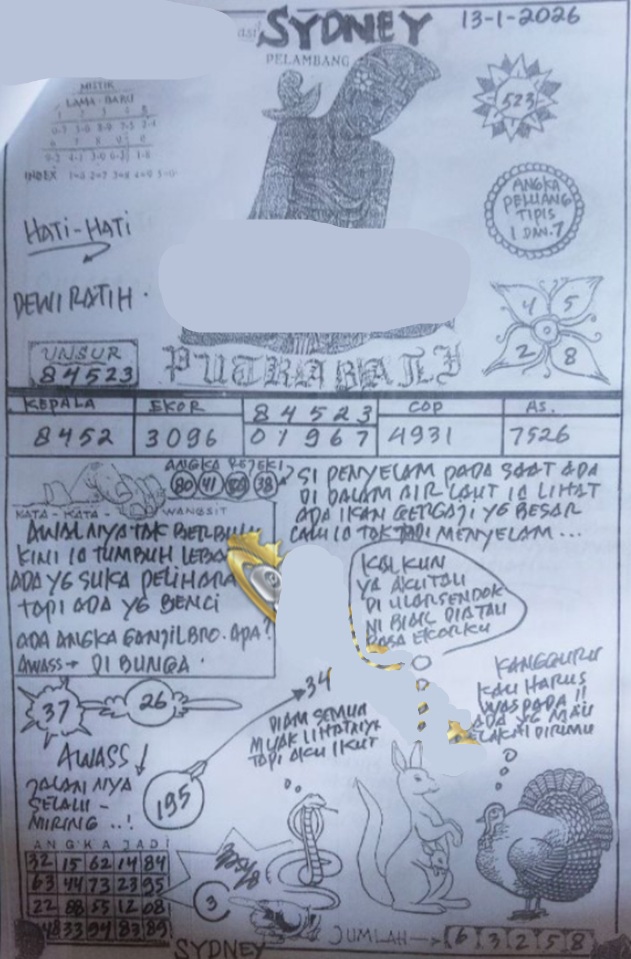 SYDNEY 13-1-2026
PELAMBANG
MISTIK
LAMA - BARU
INDEX
523
ANGKA
PELUANG
TIPIS
1 DAN.7
HATI-HATI
DEWI RATIH.
4 5
2 8
UNSUR
84523
PUTRA BALI
KEPALA EKOR 84523 COP AS.
8452 3096 01967 4931 7526
ANGKA REJEKI
80 41 38
KATA - KATA - WANGSIT
AWALNYA TAK BERBULU
KINI IA TUMBUH LEBA
ADA YG SUKA PELIHARA
TAPI ADA YG BENCI
ADA ANGKA GANJIL BRO. APA?
AWASS → DI BUNGA.
SI PENYELAM PADA SAAT ADA
DI DALAM AIR LAUT IA LIHAT
ADA IKAN GERGAJI YG BESAR
LALU IA TAK JADI MENYELAM...
KALKUN
YA AKU TAU
DI ULAR SENDOK
NI BIAK DIA TAU
RASA EKORKU
KANGGURU
KAU HARUS
WASPADA !!
ADA YG MAU
CELAKAI DIRIMU
37
26
34
DIAM SEMUA
MUAK LIHATNYE
TAPI AKU IKUT
AWASS
JALAN NYA
SELALU -
MIRING ..!
195
ANGKA JADI
32 15 62 14 84
63 44 73 23 95
22 88 55 12 08
48 33 94 83 89
3
JUMLAH → 6 3 2 5 8
SYDNEY